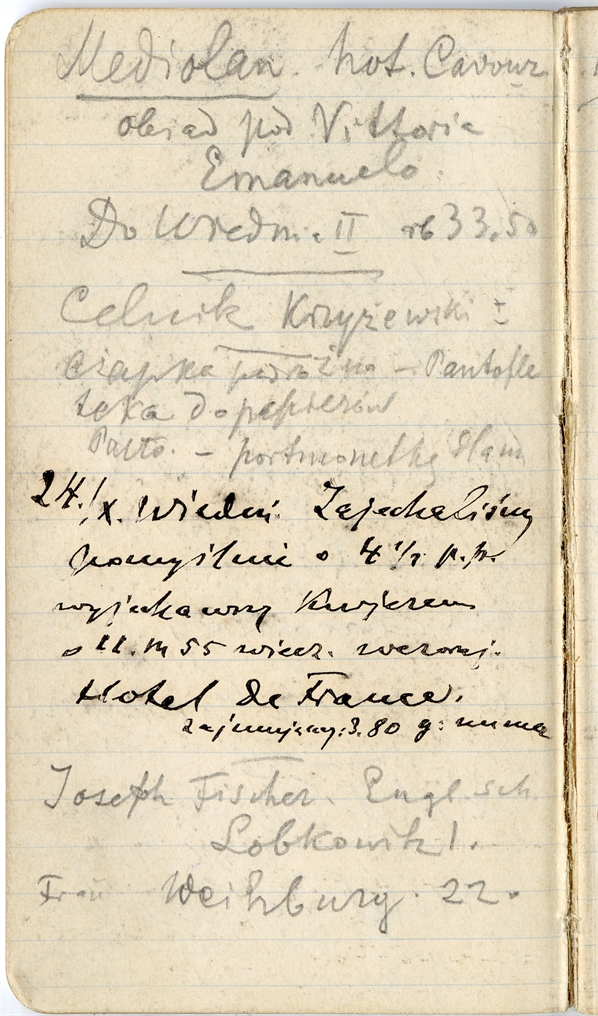 Mediolan. hot. Cavour
obiad pod Vittoria
Emanuelo.
Do Wiedni. II rb 33.50
Celnik Krzyżewski I
czapka podróżna – Pantofle
teka do papierów
Palto. – portmonetkę dla
24./X. Wiedeń Zajechaliśmy
pomyślnie o 4 1/2 p.p.
wyjechawszy Kurjerem
o 11. m 55 wiecz. wczoraj.
Hotel de France.
zajmujemy: 3.80 g: numer
Joseph Fischer. Englisch
Lobkowitz 1.
Frau Weihburg. 22.